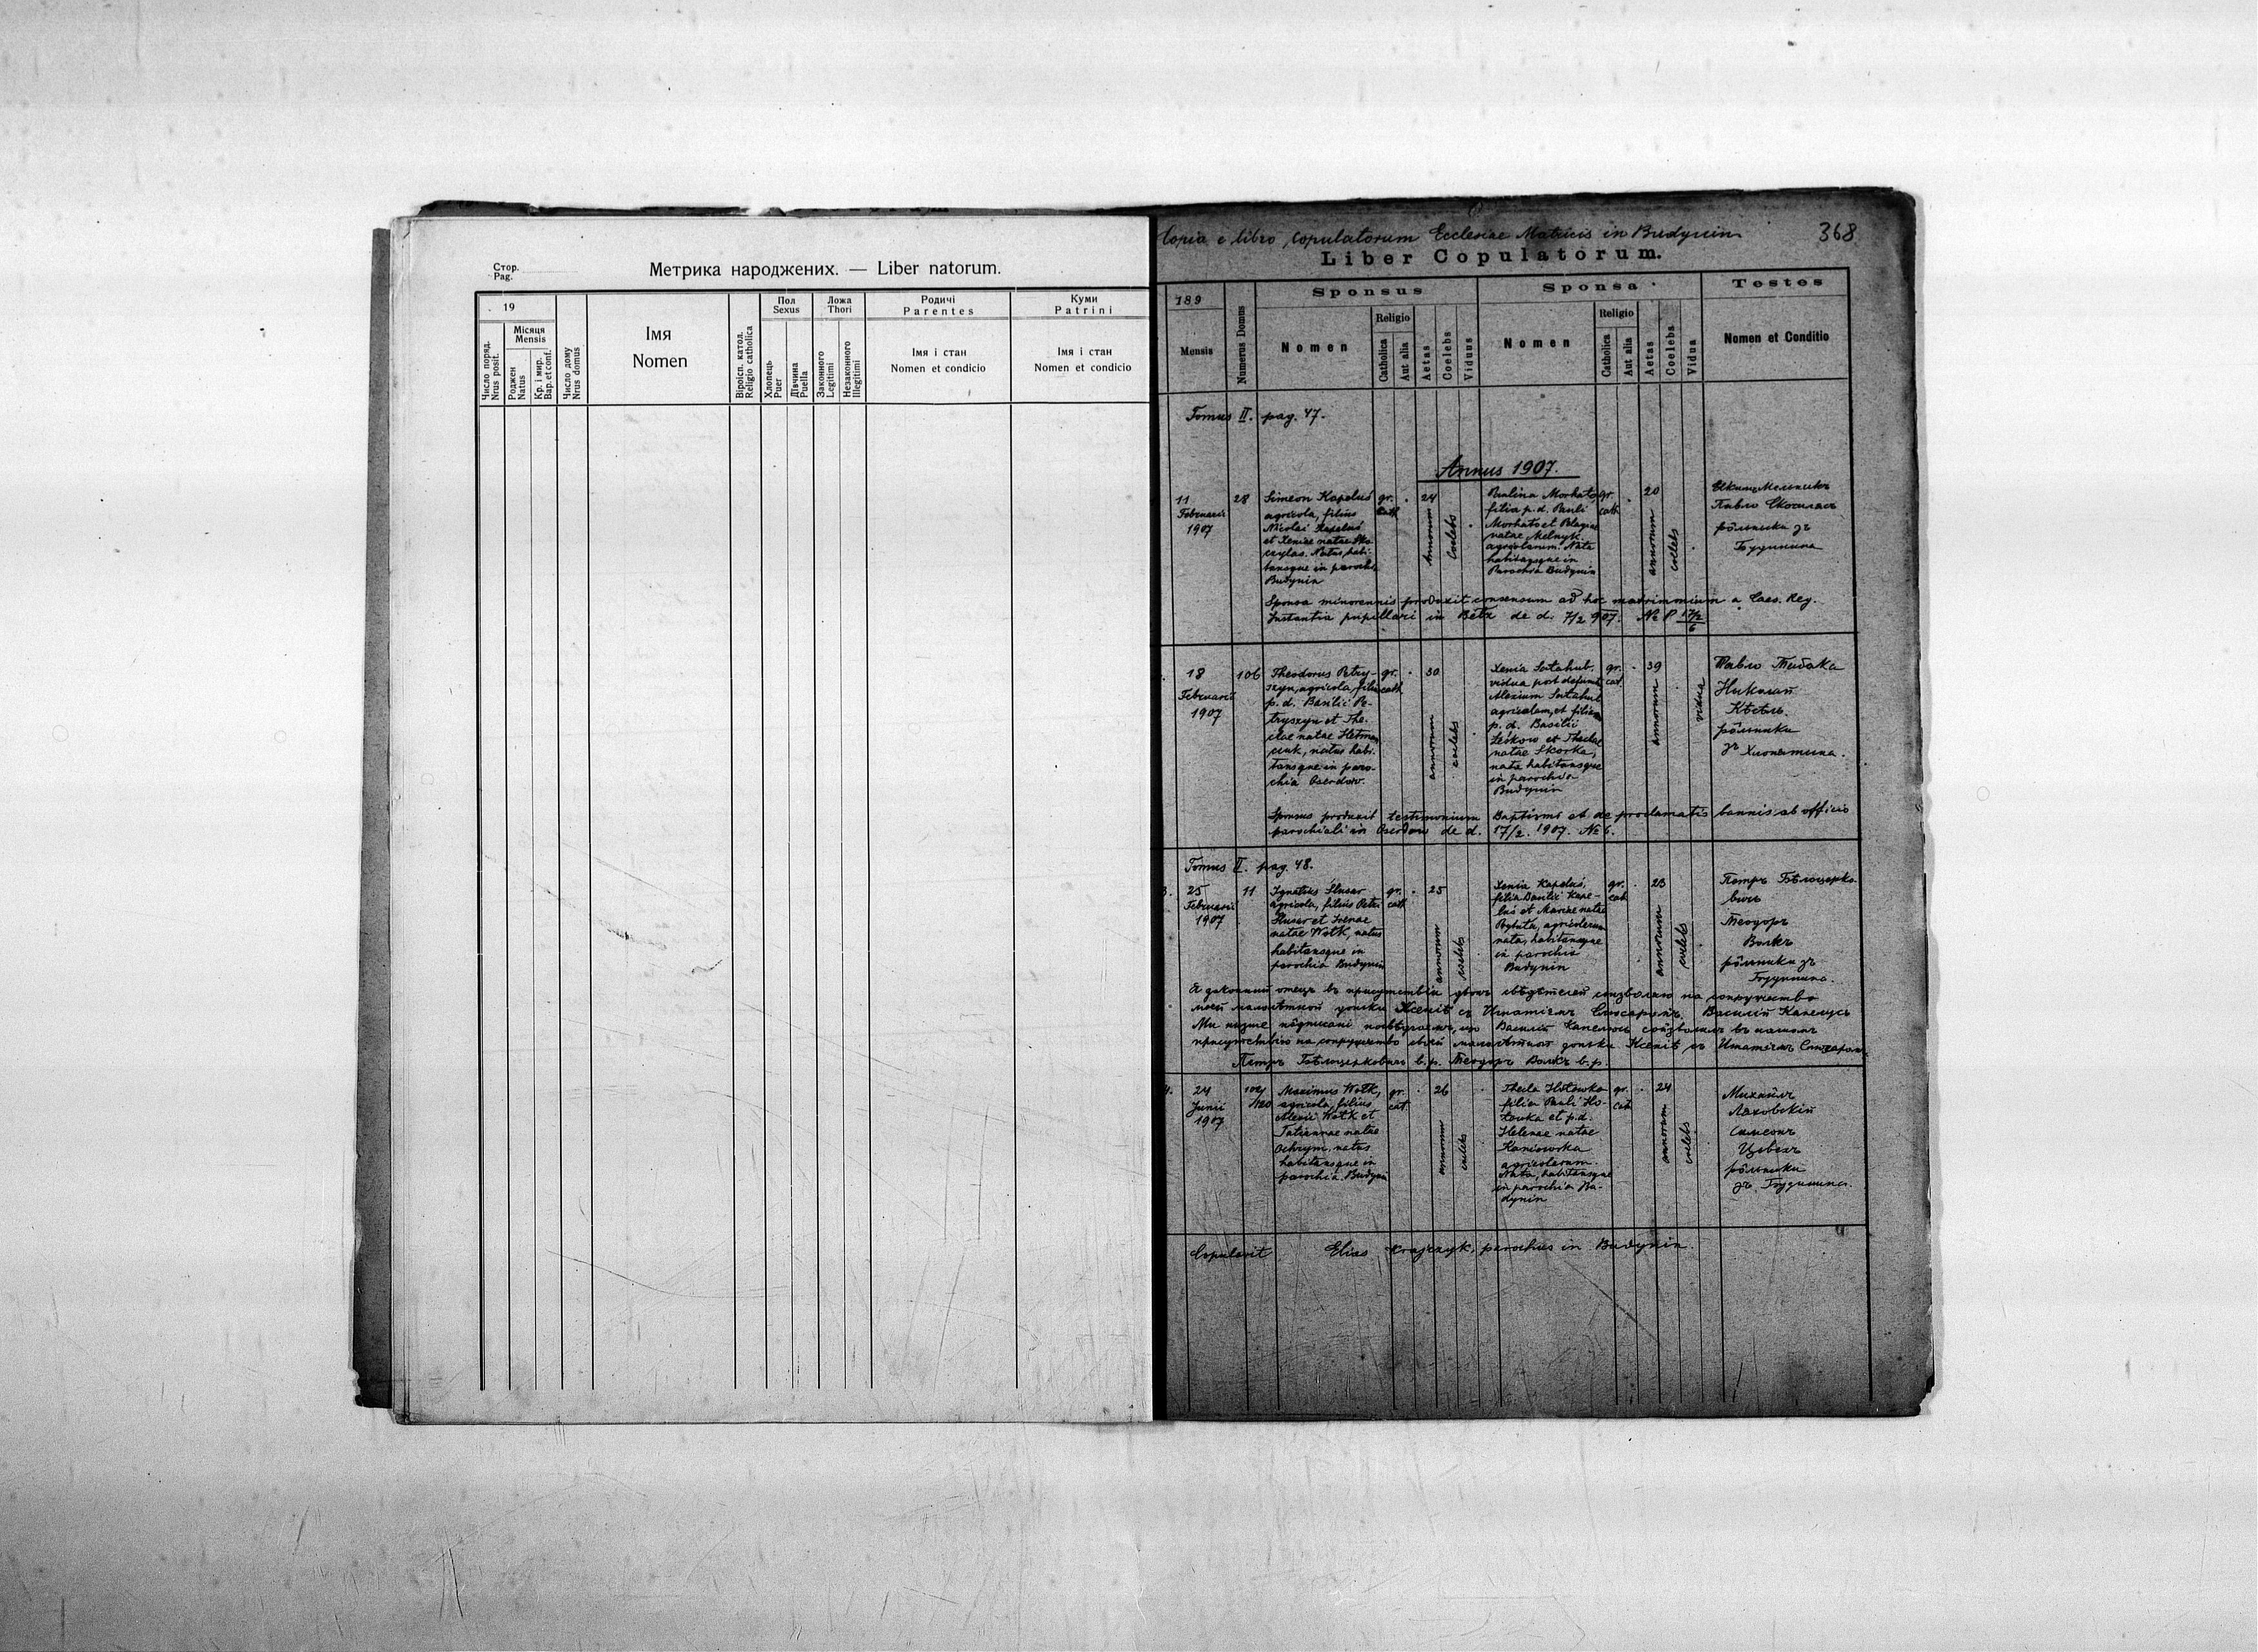 Стор.
Pag.
Метрика народжених. — Liber natorum.
19
Число поряд.
Nrus posit.
Місяця
Mensis
Роджен
Natus
Кр. і мир.
Bap. et conf.
Число дому
Nrus domus
Імя
Nomen
Віроісп. катол.
Religio catholica
Пол
Sexus
Хлопець
Puer
Дівчина
Puella
Ложа
Thori
Законного
Legitimi
Незаконного
Illegitimi
Родичі
Parentes
Імя і стан
Nomen et condicio
Куми
Patrini
Імя і стан
Nomen et condicio
Copia e libro Copulatorum Ecclesiae Matricis in Budynin
368
Liber Copulatorum.
189
Mensis
Numerus Domus
Sponsus
Nomen
Religio
Catholica
Aut alia
Aetas
Coelebs
Viduus
Sponsa
Nomen
Religio
Catholica
Aut alia
Aetas
Coelebs
Vidua
Testes
Nomen et Conditio
Tomus II. pag. 47.
Annus 1907.
11
Februarii
1907
28
Simeon Kapeluś
agricola, filius
Nicolai Kapeluś
et Xeniae natae
Natus habi-
tansque in parochia
Budynin
gr.
cath
24
annorum
Coelebs
Paulina Morhato
filia p. d. Pauli
Morhato et Pelagiae
natae Melnyk
agricolarum. Nata
habitansque in
Parochia Budynin
gr.
cath
20
annorum
coelebs
Павло
рôльники зъ
Будинина
Sponsa minorennis produxit consensum ad hoc matrimonium a Caes. Reg.
Instantia pupillari in Bełz de d. 7/2 907. № P 17/2
6
18
Februarii
1907
106
Theodorus Petry-
szyn, agricola, filius
p. d. Basilii Pe-
tryszyn et The-
clae natae Hetman
czuk, natus habi-
tansque in paro-
chia Oserdów.
gr.
cath
30
annorum
coelebs
Xenia
vidua post defunct.
Alexium
agricolam, et filia
p. d. Basilii
Leśków et Theclae
natae Skorka,
nata habitansque
in parochia
Budynin
gr.
cat.
39
annorum
vidua
Павло
Николай
рôльники
зъ Хлопятина.
Sponsus produxit testimonium Baptismi et de proclamatis bannis ab officio
parochiali in Oserdow de d. 17/2. 1907. № 6.
Tomus II. pag. 48.
3.
25
Februarii
1907
11
Ignatius Ślusar
agricola, filius Petri
Ślusar et Irenae
natae Wołk, natus
habitansque in
parochia Budynin
gr.
cath
25
annorum
coelebs
Xenia Kapeluś,
filia Basilii Kape-
luś et Mariae natae
agricolarum
nata, habitansque
in parochia
Budynin
gr.
cat
23
annorum
coelebs
Петръ Бѣлоцерко-
вичъ
Теодоръ
Волкъ
рôльники зъ
Будинина.
Я законний отець въ присутствіи двохъ свѣдѣтелей соизволяю на сопружество
моей малолѣтной доньки Ксеніѣ съ Игнатіемъ Слюсаромъ. Василій Капелусь
Ми низше пôдписані посвѣдчаемъ, що Василій Капелюсь соизволивъ въ нашомъ
присутствію на сопружество своєй малолѣтной доньки Ксеніѣ съ Игнатіемъ Слюсаромъ.
Петръ Бѣлоцерковичъ в. р. Теодоръ Волкъ в. р.
4.
24
Junii
1907
Maximus Wołk,
agricola, filius
Alexii Wołk et
Tatiannae natae
Ochrym, natus
habitansque in
parochia Budynin
gr.
cat.
26
annorum
coelebs
Thecla Hołowka
filia Pauli Ho-
łowka et p. d.
Helenae natae
agricolarum
Nata, habitansque
in parochia Bu-
dynin
gr.
cat.
24
annorum
coelebs
Михаилъ
Ляховскій
Самсонъ
рôльники
зъ Будинина.
Copulavit Elias Krajczyk, parochus in Budynin.